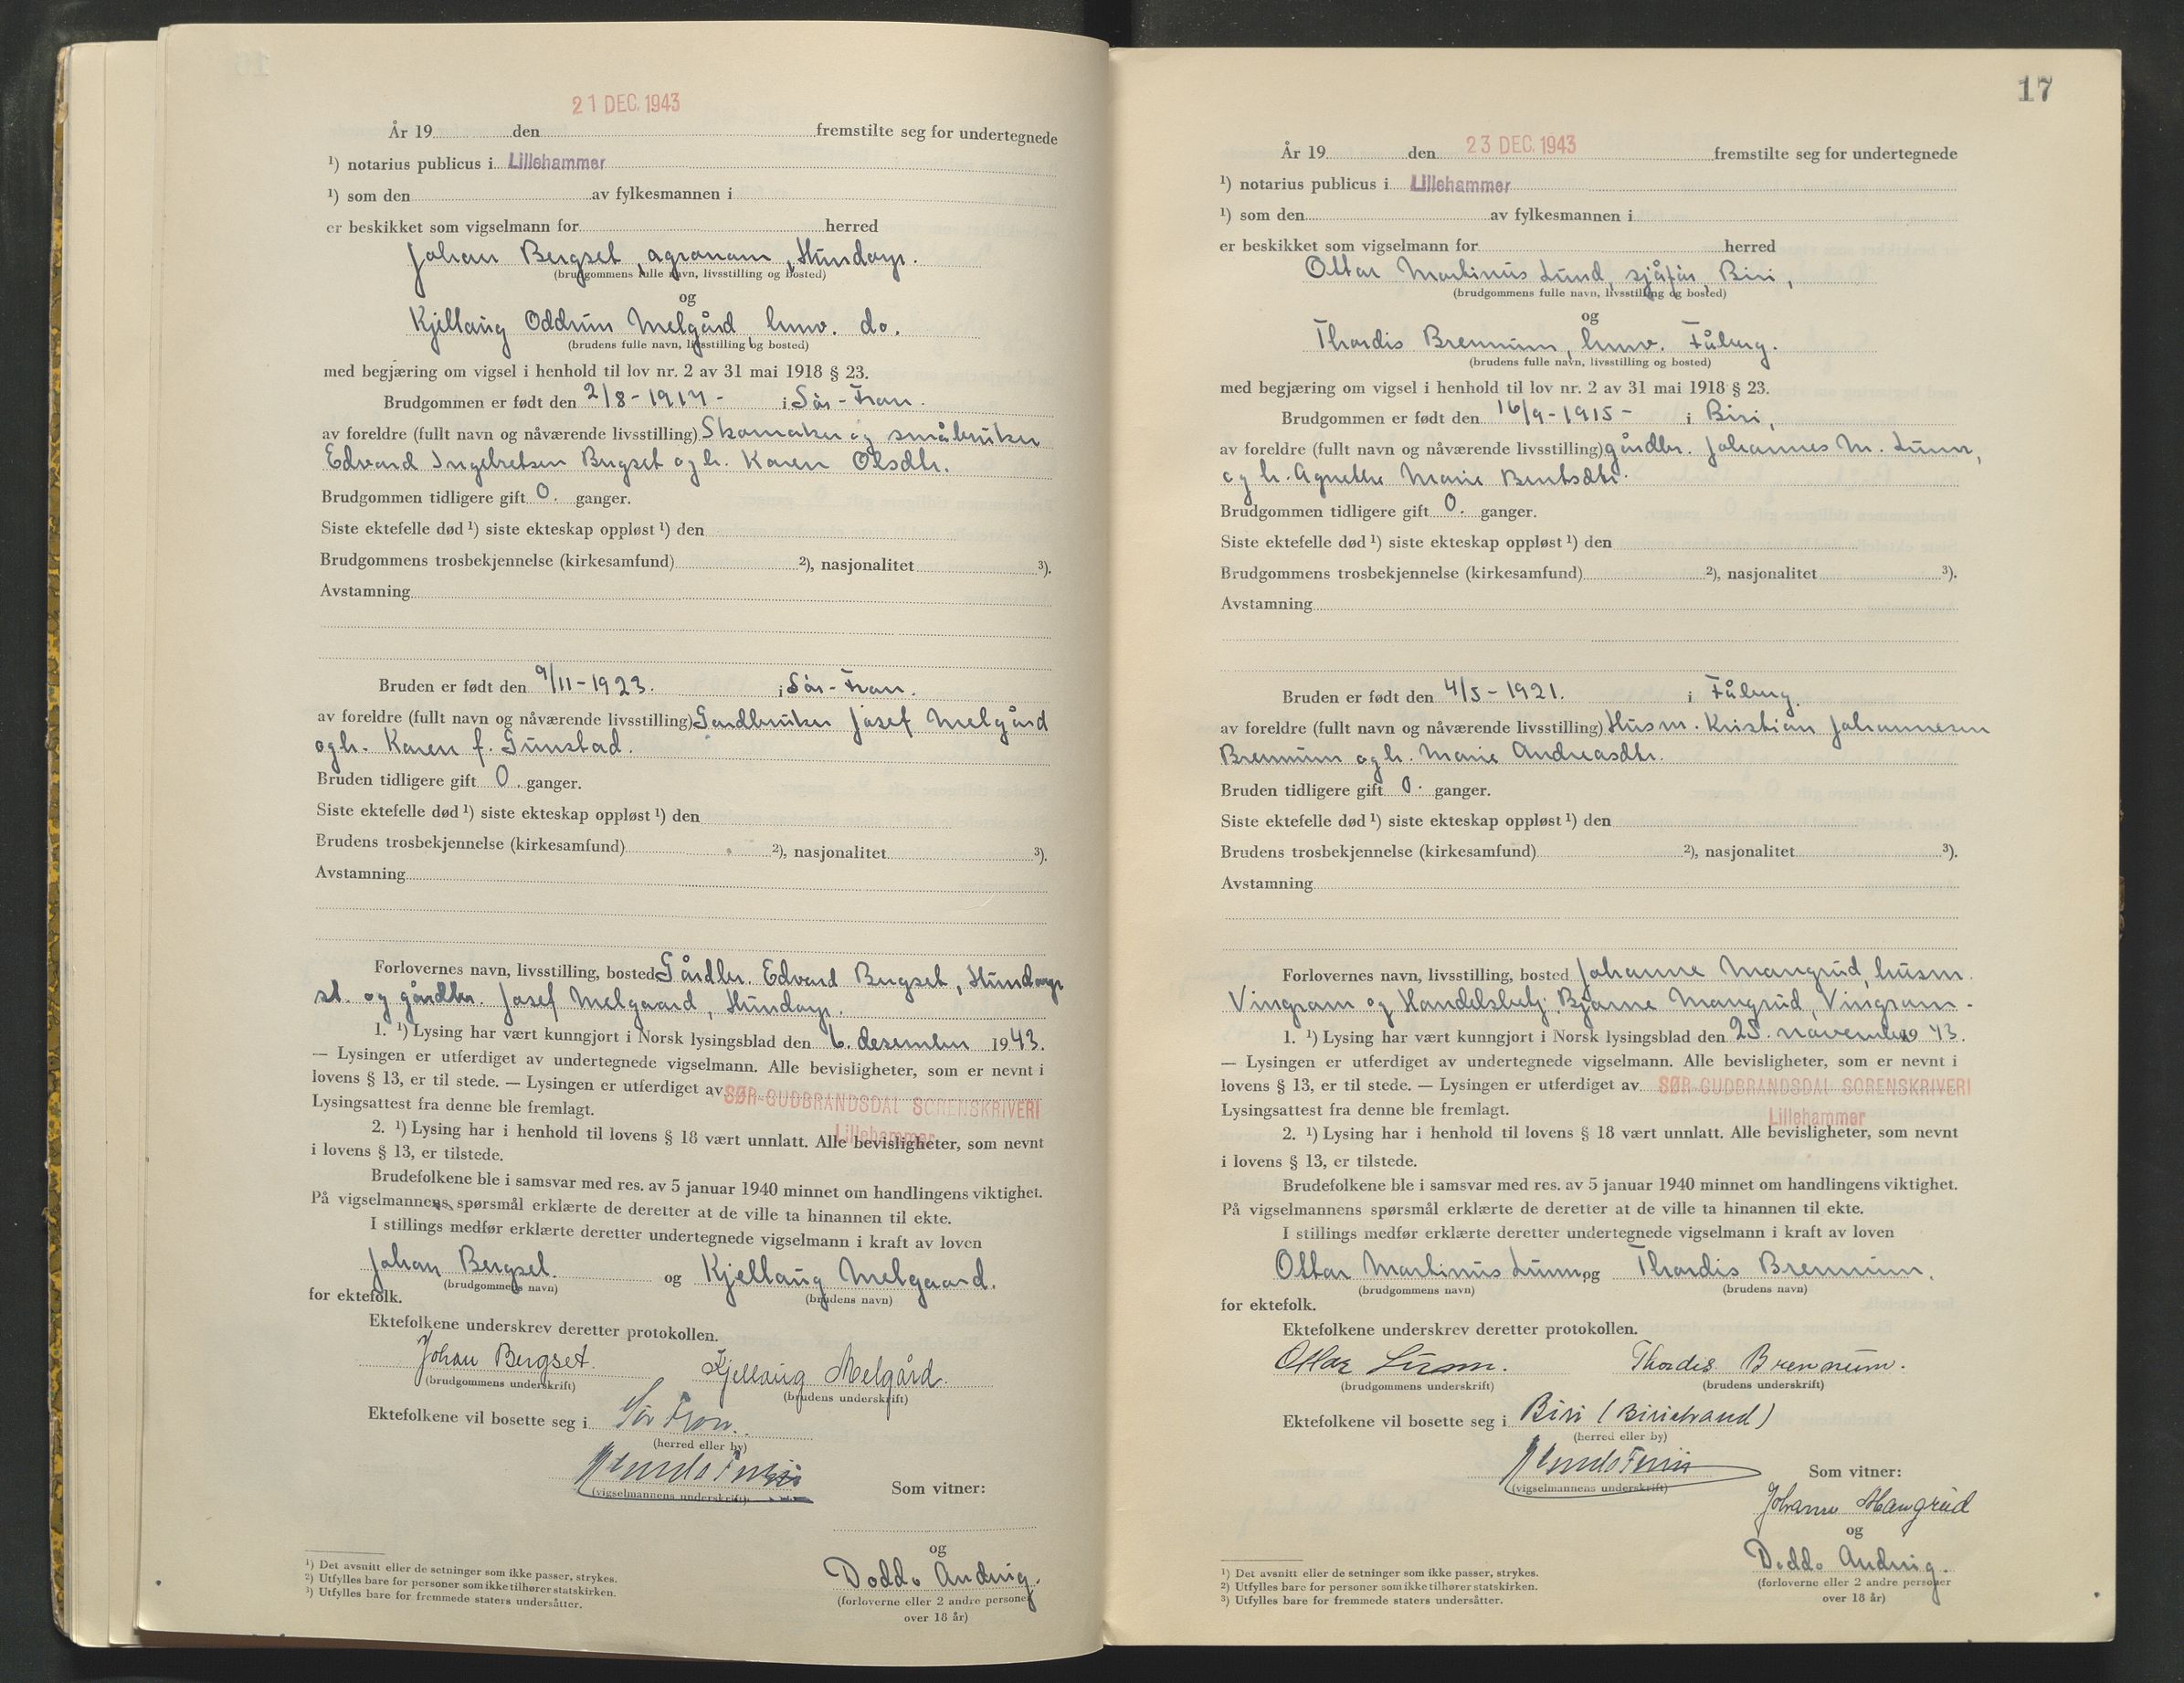 21 DEC. 1943
År 19 den fremstilte seg for undertegnede
¹) notarius publicus i Lillehammer
¹) som den av fylkesmannen i
er beskikket som vigselmann for herred
Johan Bergset, agronom, Hundorp.
(brudgommens fulle navn, livsstilling og bosted)
og
Kjellaug Oddrun Melgård husv. do.
(brudens fulle navn, livsstilling og bosted)
med begjæring om vigsel i henhold til lov nr. 2 av 31 mai 1918 § 23.
Brudgommen er født den 2/8-1917- i Sør-Fron.
av foreldre (fullt navn og nåværende livsstilling) Skomaker og småbruker
Edvard Ingebretsen Bergset og h. Karen Olsdtr.
Brudgommen tidligere gift 0. ganger.
Siste ektefelle død ¹) siste ekteskap oppløst ¹) den
Brudgommens trosbekjennelse (kirkesamfund) ²), nasjonalitet ³).
Avstamning
Bruden er født den 9/11-1923. i Sør-Fron.
av foreldre (fullt navn og nåværende livsstilling) Gardbruker Josef Melgård
og h. Karen f. Gunstad.
Bruden tidligere gift 0. ganger.
Siste ektefelle død ¹) siste ekteskap oppløst ¹) den
Brudens trosbekjennelse (kirkesamfund) ²), nasjonalitet ³).
Avstamning
Forlovernes navn, livsstilling, bosted Gårdbr. Edvard Bergset, Hundorp
st. og gårdbr. Josef Melgaard, Hundorp.
1. ¹) Lysing har vært kunngjort i Norsk lysingsblad den 6. desember 1943.
— Lysingen er utferdiget av undertegnede vigselmann. Alle bevisligheter, som er nevnt i
lovens § 13, er til stede. — Lysingen er utferdiget av SØR-GUDBRANDSDAL SORENSKRIVERI
Lysingsattest fra denne ble fremlagt. Lillehammer
2. ¹) Lysing har i henhold til lovens § 18 vært unnlatt. Alle bevisligheter, som nevnt
i lovens § 13, er tilstede.
Brudefolkene ble i samsvar med res. av 5 januar 1940 minnet om handlingens viktighet.
På vigselmannens spørsmål erklærte de deretter at de ville ta hinannen til ekte.
I stillings medfør erklærte deretter undertegnede vigselmann i kraft av loven
Johan Bergset. og Kjellaug Melgaard.
(brudgommens navn) (brudens navn)
for ektefolk.
Ektefolkene underskrev deretter protokollen.
Johan Bergset. Kjellaug Melgård.
(brudgommens underskrift) (brudens underskrift)
Ektefolkene vil bosette seg i Sør Fron.
(herred eller by)
(vigselmannens underskrift)
Som vitner:
og
Doddo Andvig.
(forloverne eller 2 andre personer
over 18 år)
¹) Det avsnitt eller de setninger som ikke passer, strykes.
²) Utfylles bare for personer som ikke tilhører statskirken.
³) Utfylles bare for fremmede staters undersåtter.
17
År 19 den 23 DEC. 1943 fremstilte seg for undertegnede
¹) notarius publicus i Lillehammer
¹) som den av fylkesmannen i
er beskikket som vigselmann for herred
Ottar Martinus Lund, sjåfør, Biri,
(brudgommens fulle navn, livsstilling og bosted)
og
Thordis Brennum, husv. Fåberg.
(brudens fulle navn, livsstilling og bosted)
med begjæring om vigsel i henhold til lov nr. 2 av 31 mai 1918 § 23.
Brudgommen er født den 16/9-1915- i Biri,
av foreldre (fullt navn og nåværende livsstilling) gårdbr. Johannes M. Lunn,
og h. Agnethe Marie Berntsdtr.
Brudgommen tidligere gift 0. ganger.
Siste ektefelle død ¹) siste ekteskap oppløst ¹) den
Brudgommens trosbekjennelse (kirkesamfund) ²), nasjonalitet ³).
Avstamning
Bruden er født den 4/5-1921. i Fåberg.
av foreldre (fullt navn og nåværende livsstilling) Husm. Kristian Johannesen
Brennum og h. Marie Andreasdtr.
Bruden tidligere gift 0. ganger.
Siste ektefelle død ¹) siste ekteskap oppløst ¹) den
Brudens trosbekjennelse (kirkesamfund) ²), nasjonalitet ³).
Avstamning
Forlovernes navn, livsstilling, bosted Johanne Mangrud, husm.
Vingrom og Handelsbetj. Bjarne Mangrud, Vingrom.
1. ¹) Lysing har vært kunngjort i Norsk lysingsblad den 25. november 1943.
— Lysingen er utferdiget av undertegnede vigselmann. Alle bevisligheter, som er nevnt i
lovens § 13, er til stede. — Lysingen er utferdiget av SØR-GUDBRANDSDAL SORENSKRIVERI
Lysingsattest fra denne ble fremlagt. Lillehammer
2. ¹) Lysing har i henhold til lovens § 18 vært unnlatt. Alle bevisligheter, som nevnt
i lovens § 13, er tilstede.
Brudefolkene ble i samsvar med res. av 5 januar 1940 minnet om handlingens viktighet.
På vigselmannens spørsmål erklærte de deretter at de ville ta hinannen til ekte.
I stillings medfør erklærte deretter undertegnede vigselmann i kraft av loven
Ottar Martinus Lunn og Thordis Brennum.
(brudgommens navn) (brudens navn)
for ektefolk.
Ektefolkene underskrev deretter protokollen.
Ottar Lunn. Thordis Brennum.
(brudgommens underskrift) (brudens underskrift)
Ektefolkene vil bosette seg i Biri (Biristrand)
(herred eller by)
(vigselmannens underskrift)
Som vitner:
Johanne Mangrud
og
Doddo Andvig.
(forloverne eller 2 andre personer
over 18 år)
¹) Det avsnitt eller de setninger som ikke passer, strykes.
²) Utfylles bare for personer som ikke tilhører statskirken.
³) Utfylles bare for fremmede staters undersåtter.